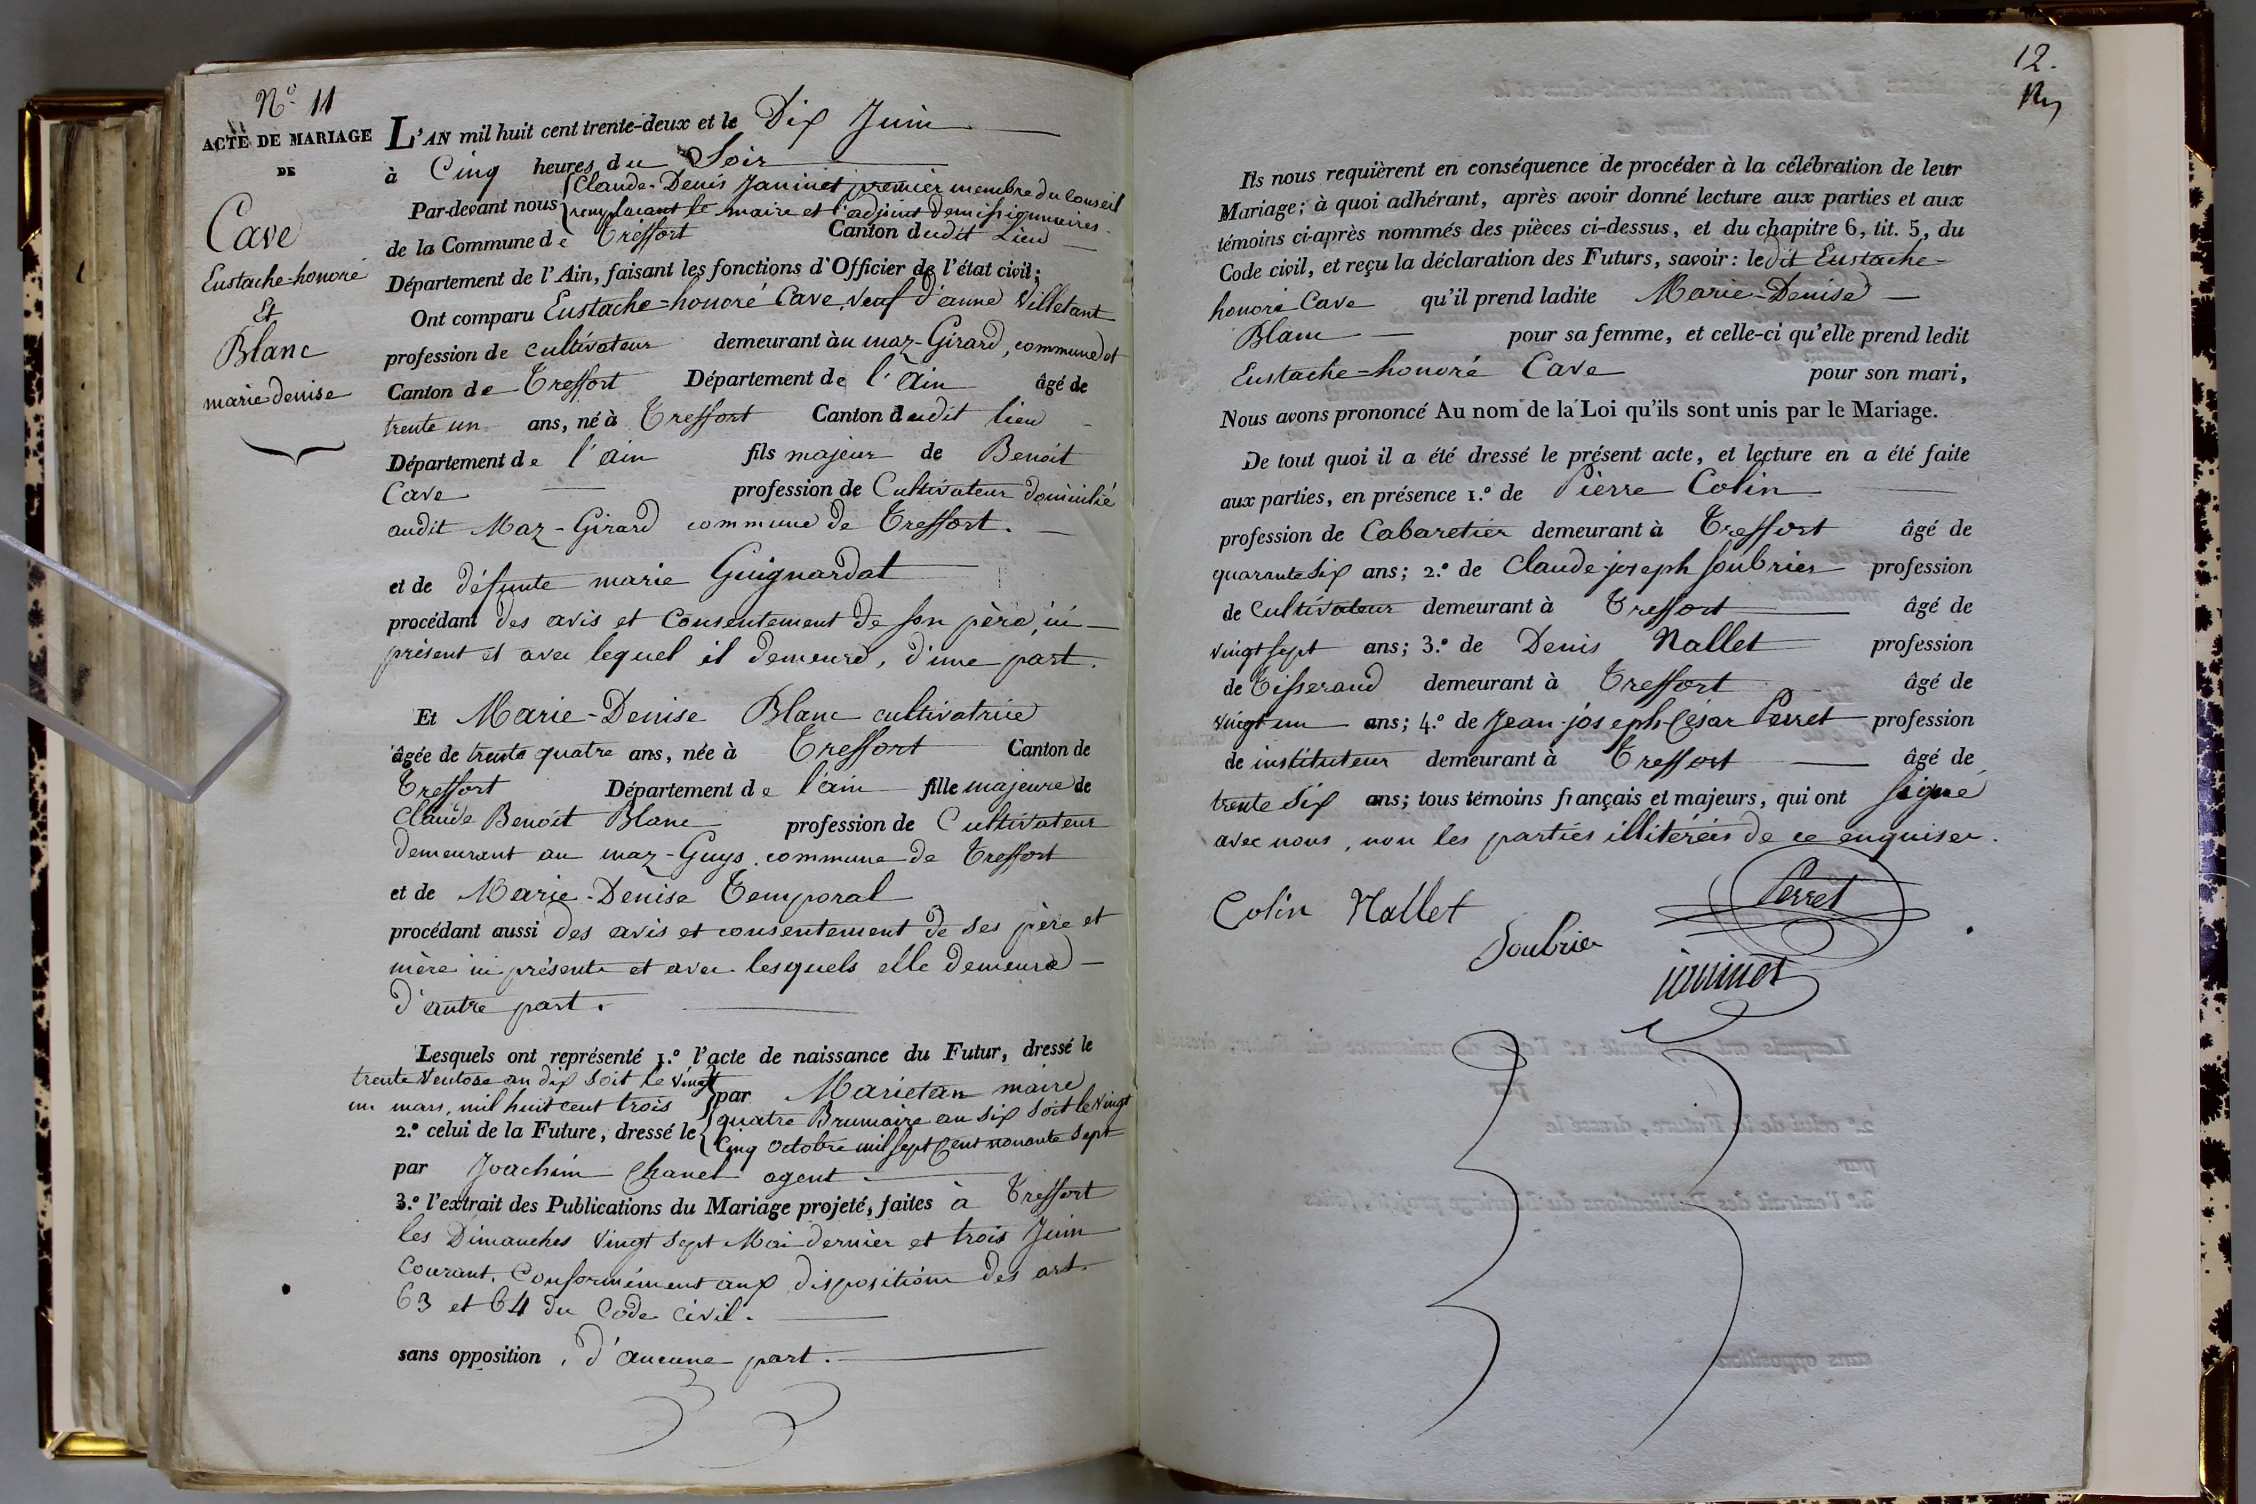 N.º 11
ACTE DE MARIAGE
DE
Cave
Eustache-honoré
Et
Blanc
marie denise
L'AN mil huit cent trente-deux et le Dix Juin
à Cinq heures du Soir
Par-devant nous Claude-Denis Janinet premier membre du Conseil
remplacant le maire et l'adjoint demissionnaires.
de la Commune de Treffort Canton dudit Lieu
Département de l'Ain, faisant les fonctions d'Officier de l'état civil;
Ont comparu Eustache=honoré Cave, veuf d'anne Villetant
profession de cultivateur demeurant àu maz-Girard, commune et
Canton de Treffort Département de l'Ain âgé de
trente un ans, né à Treffort Canton dudit lieu
Département de l'ain fils majeur de Benoit
Cave profession de Cultivateur domicilié
audit Maz-Girard commune de Treffort.
et de défunte marie Guignardat
procédant des avis et Consentement de son père, ici
présent et avec lequel il demeure, d'une part.
Et Marie-Denise Blanc cultivatrice
âgée de trente quatre ans, née à Treffort Canton de
Treffort Département de l'ain fille majeure de
Claude Benoit Blanc profession de Cultivateur
demeurant au maz-Guys. commune de Treffort
et de Marie-Denise Temporal
procédant aussi des avis et consentement de ses père et
mère ici présents et avec lesquels elle demeure
d'autre part.
Lesquels ont représenté 1.º l'acte de naissance du Futur, dressé le
trente Ventose an dix soit le vingt
un mars, mil huit cent trois par Marietan maire
2.º celui de la Future, dressé le quatre Brumaire an six soit le vingt
Cinq octobre mil sept Cent nonante sept
par Joachim Chanel agent.
3.º l'extrait des Publications du Mariage projeté, faites à Treffort
les Dimanches vingt sept Mai dernier et trois Juin
Courant. Conformément aux disposition des art.
63 et 64 du Code Civil.
sans opposition, d'aucune part.
12.
Ils nous requièrent en conséquence de procéder à la célébration de leur
Mariage; à quoi adhérant, après avoir donné lecture aux parties et aux
témoins ci-après nommés des pièces ci-dessus, et du chapitre 6, tit. 5, du
Code civil, et reçu la déclaration des Futurs, savoir: ledit Eustache-
honoré Cave qu'il prend ladite Marie-Denise
Blanc pour sa femme, et celle-ci qu'elle prend ledit
Eustache=honoré Cave pour son mari,
Nous avons prononcé Au nom de la Loi qu'ils sont unis par le Mariage.
De tout quoi il a été dressé le présent acte, et lecture en a été faite
aux parties, en présence 1.º de Pierre Colin
profession de Cabaretier demeurant à Treffort âgé de
quarante six ans; 2.º de Claude-joseph Soubrier profession
de Cultivateur demeurant à Treffort âgé de
vingt sept ans; 3.º de Denis Nallet profession
de Tisserand demeurant à Treffort âgé de
vingt un ans; 4.º de Jean-joseph-César Perret profession
de instituteur demeurant à Treffort âgé de
trente six ans; tous témoins français et majeurs, qui ont signé
avec nous, non les parties illitérées de ce enquises.
Colin Nallet Perret
Soubrier
janinet